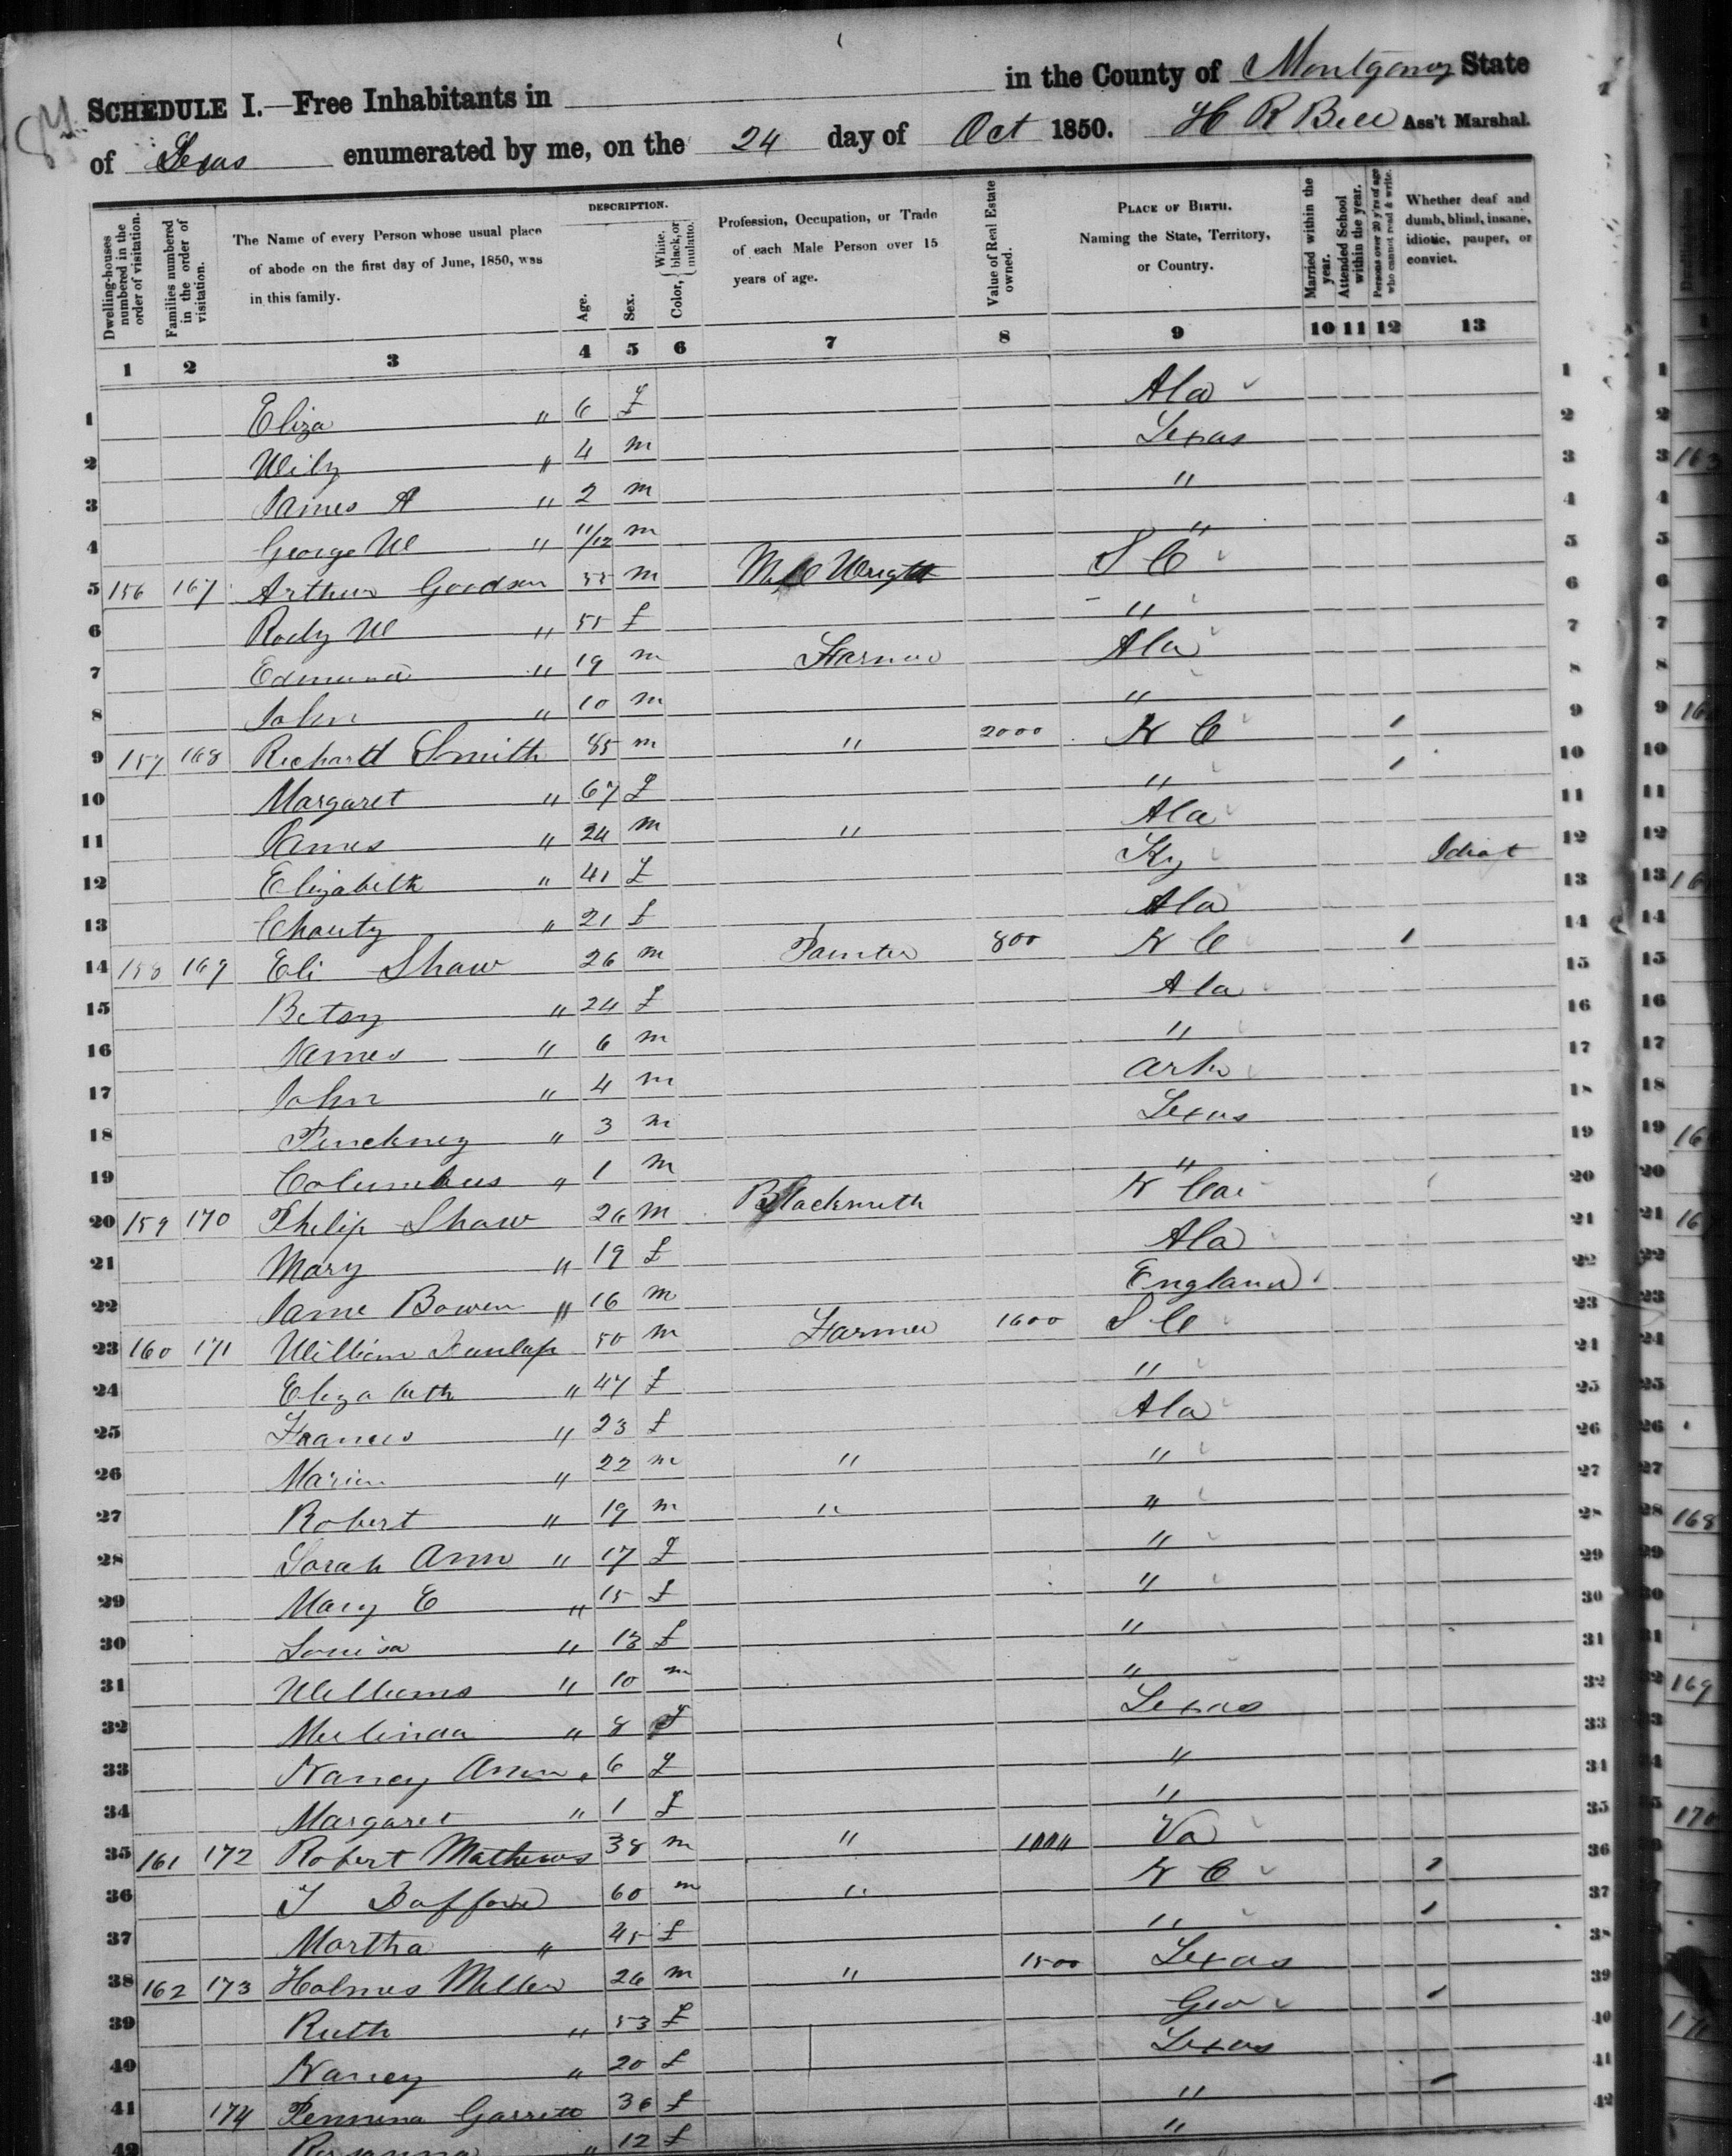 SCHEDULE I.—Free Inhabitants in in the County of Montgomery State
of Texas enumerated by me, on the 24 day of Oct 1850. H R Bell Ass't Marshal.
Dwelling-houses numbered in the order of visitation.
Families numbered in the order of visitation.
The Name of every Person whose usual place of abode on the first day of June, 1850, was in this family.
DESCRIPTION.
Age.
Sex.
Color, { White, black, or mulatto.
Profession, Occupation, or Trade of each Male Person over 15 years of age.
Value of Real Estate owned.
PLACE OF BIRTH. Naming the State, Territory, or Country.
Married within the year.
Attended School within the year.
Persons over 20 y'rs of age who cannot read & write.
Whether deaf and dumb, blind, insane, idiotic, pauper, or convict.
1 2 3 4 5 6 7 8 9 10 11 12 13
1 Eliza " 6 f Ala 1
2 Wily " 4 m Texas 2
3 James A " 2 m " 3
4 George W " 11/12 m " 4
5 156 167 Arthur Goodson 55 m Mill Wright S C 5
6 Rody W " 55 f " 6
7 Edmund " 19 m Farmer Ala 7
8 John " 10 m " 8
9 157 168 Richard Smith 85 m " 2000 N C / 9
10 Margaret " 67 f " / 10
11 James " 24 m " Ala 11
12 Elizabeth " 41 f Ky Idiot 12
13 Charity " 21 f Ala 13
14 158 169 Eli Shaw 26 m Painter 800 N C / 14
15 Betsy " 24 f Ala 15
16 James " 6 m " 16
17 John " 4 m Ark 17
18 Pinckney " 3 m Texas 18
19 Columbus " 1 m " 19
20 159 170 Philip Shaw 26 m Blacksmith N Car 20
21 Mary " 19 f Ala 21
22 Jame Bowen " 16 m England 22
23 160 171 William Dunlap 50 m Farmer 1600 S C 23
24 Elizabeth " 47 f " 24
25 Frances " 23 f Ala 25
26 Marion " 22 m " " 26
27 Robert " 19 m " " 27
28 Sarah Ann " 17 f " 28
29 Mary E " 15 f " 29
30 Louisa " 13 f " 30
31 Williams " 10 m " 31
32 Melinda " 8 f Texas 32
33 Nancy Ann " 6 f " 33
34 Margaret " 1 f " 34
35 161 172 Robert Mathews 38 m " 1000 Va 35
36 J Daffore 60 m " N C / 36
37 Martha " 45 f " / 37
38 162 173 Holmes Miller 26 m " 1500 Texas 38
39 Ruth " 53 f Geo / 39
40 Nancy " 20 f Texas 40
41 174 Pennina Garrett 36 f " / 41
42 Rosanna " 12 f " 42